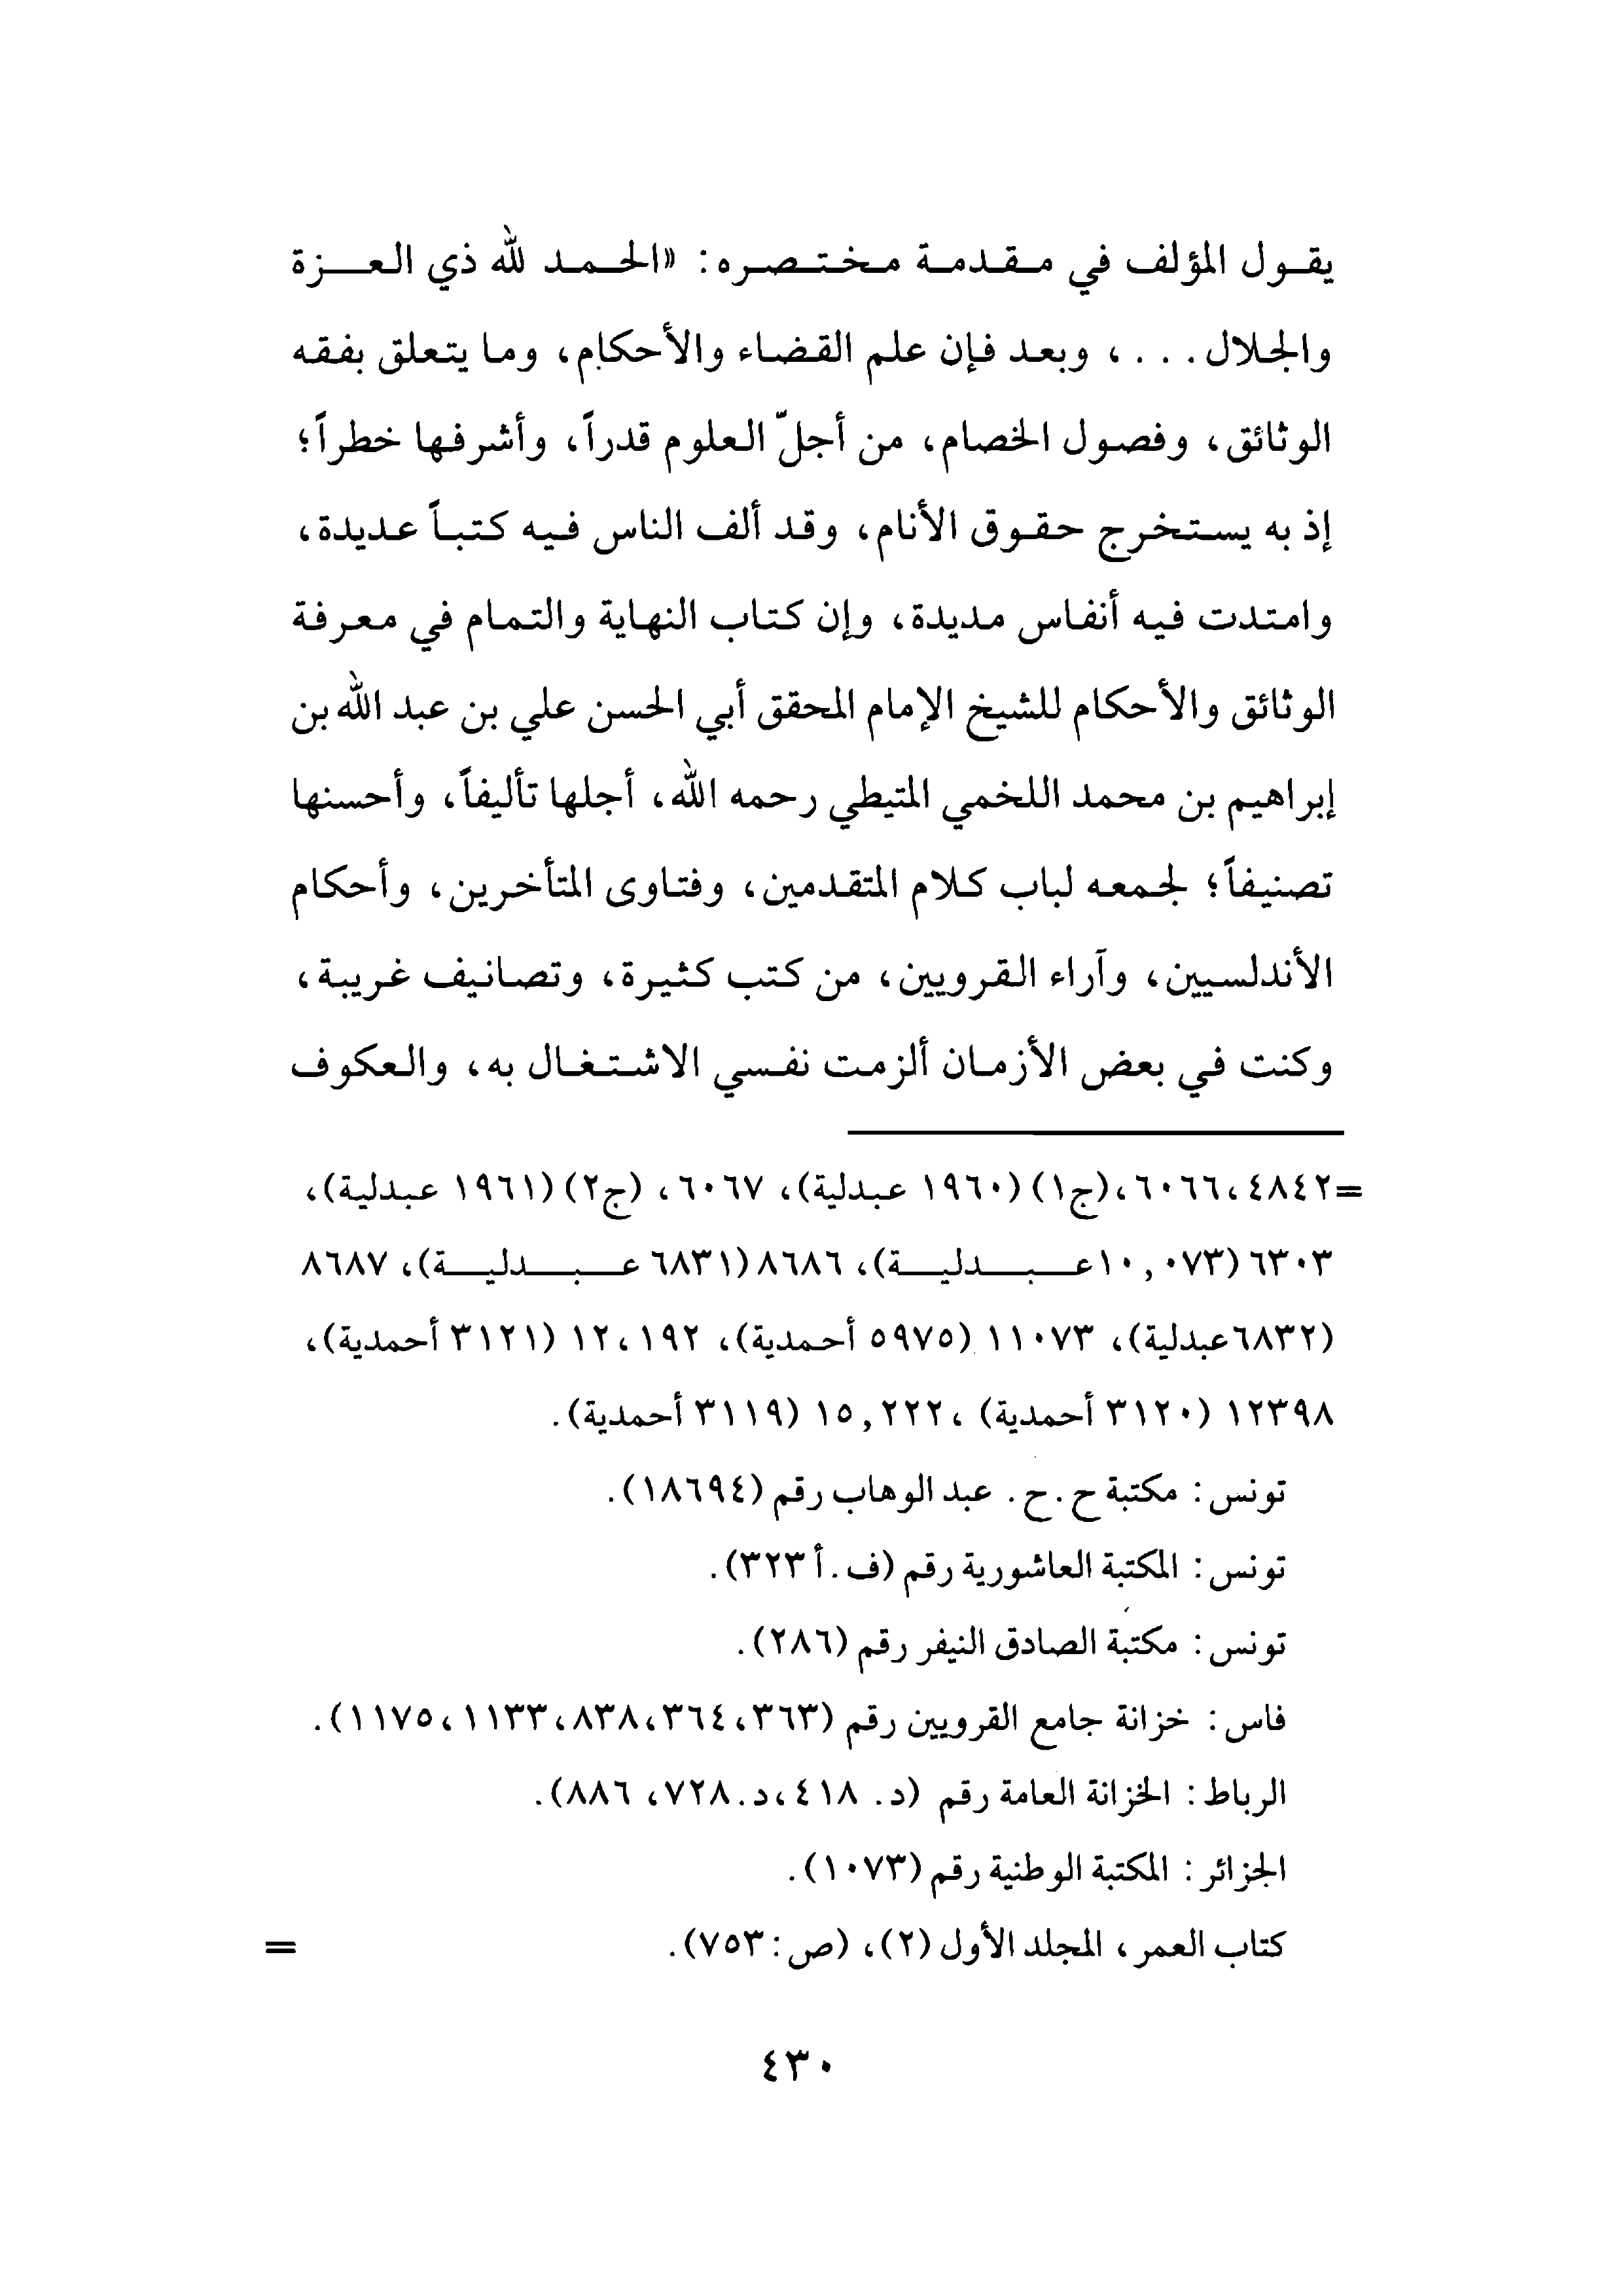 يقول المؤلف في مقدمة مختصره: «الحمد لله ذي العزة
والجلال . . . ، وبعد فإن علم القضاء والأحكام، وما يتعلق بفقه
الوثائق، وفصول الخصام، من أجلّ العلوم قدراً، وأشرفها خطراً؛
إذ به يستخرج حقوق الأنام، وقد ألف الناس فيه كتباً عديدة،
وامتدت فيه أنفاس مديدة، وإن كتاب النهاية والتمام في معرفة
الوثائق والأحكام للشيخ الإمام المحقق أبي الحسن علي بن عبد الله بن
إبراهيم بن محمد اللخمي المتيطي رحمه الله، أجلها تأليفاً، وأحسنها
تصنيفاً؛ لجمعه لباب كلام المتقدمين، وفتاوى المتأخرين، وأحكام
الأندلسيين، وآراء القرويين، من كتب كثيرة، وتصانيف غريبة،
وكنت في بعض الأزمان ألزمت نفسي الاشتغال به، والعكوف
=٤٨٤٢، ٦٠٦٦،(ج١) (١٩٦٠ عبدلية)، ٦٠٦٧، (ج٢) (١٩٦١ عبدلية)،
٦٣٠٣ (١٠,٠٧٣عبدلية)، ٨٦٨٦ (٦٨٣١ عبدلية)، ٨٦٨٧
(٦٨٣٢عبدلية)، ١١٠٧٣ (٥٩٧٥ أحمدية)، ١٢،١٩٢ (٣١٢١ أحمدية)،
١٢٣٩٨ (٣١٢٠ أحمدية) ،١٥,٢٢٢ (٣١١٩ أحمدية).
تونس: مكتبة ح.ح. عبد الوهاب رقم (١٨٦٩٤).
تونس: المكتبة العاشورية رقم (ف.أ ٣٢٣).
تونس: مكتبة الصادق النيفر رقم (٢٨٦).
فاس: خزانة جامع القرويين رقم (٣٦٣، ٣٦٤،٨٣٨، ١١٣٣، ١١٧٥).
الرباط: الخزانة العامة رقم (د. ٤١٨،د.٧٢٨، ٨٨٦).
الجزائر: المكتبة الوطنية رقم (١٠٧٣).
كتاب العمر، المجلد الأول (٢)، (ص:٧٥٣). =
٤٣٠